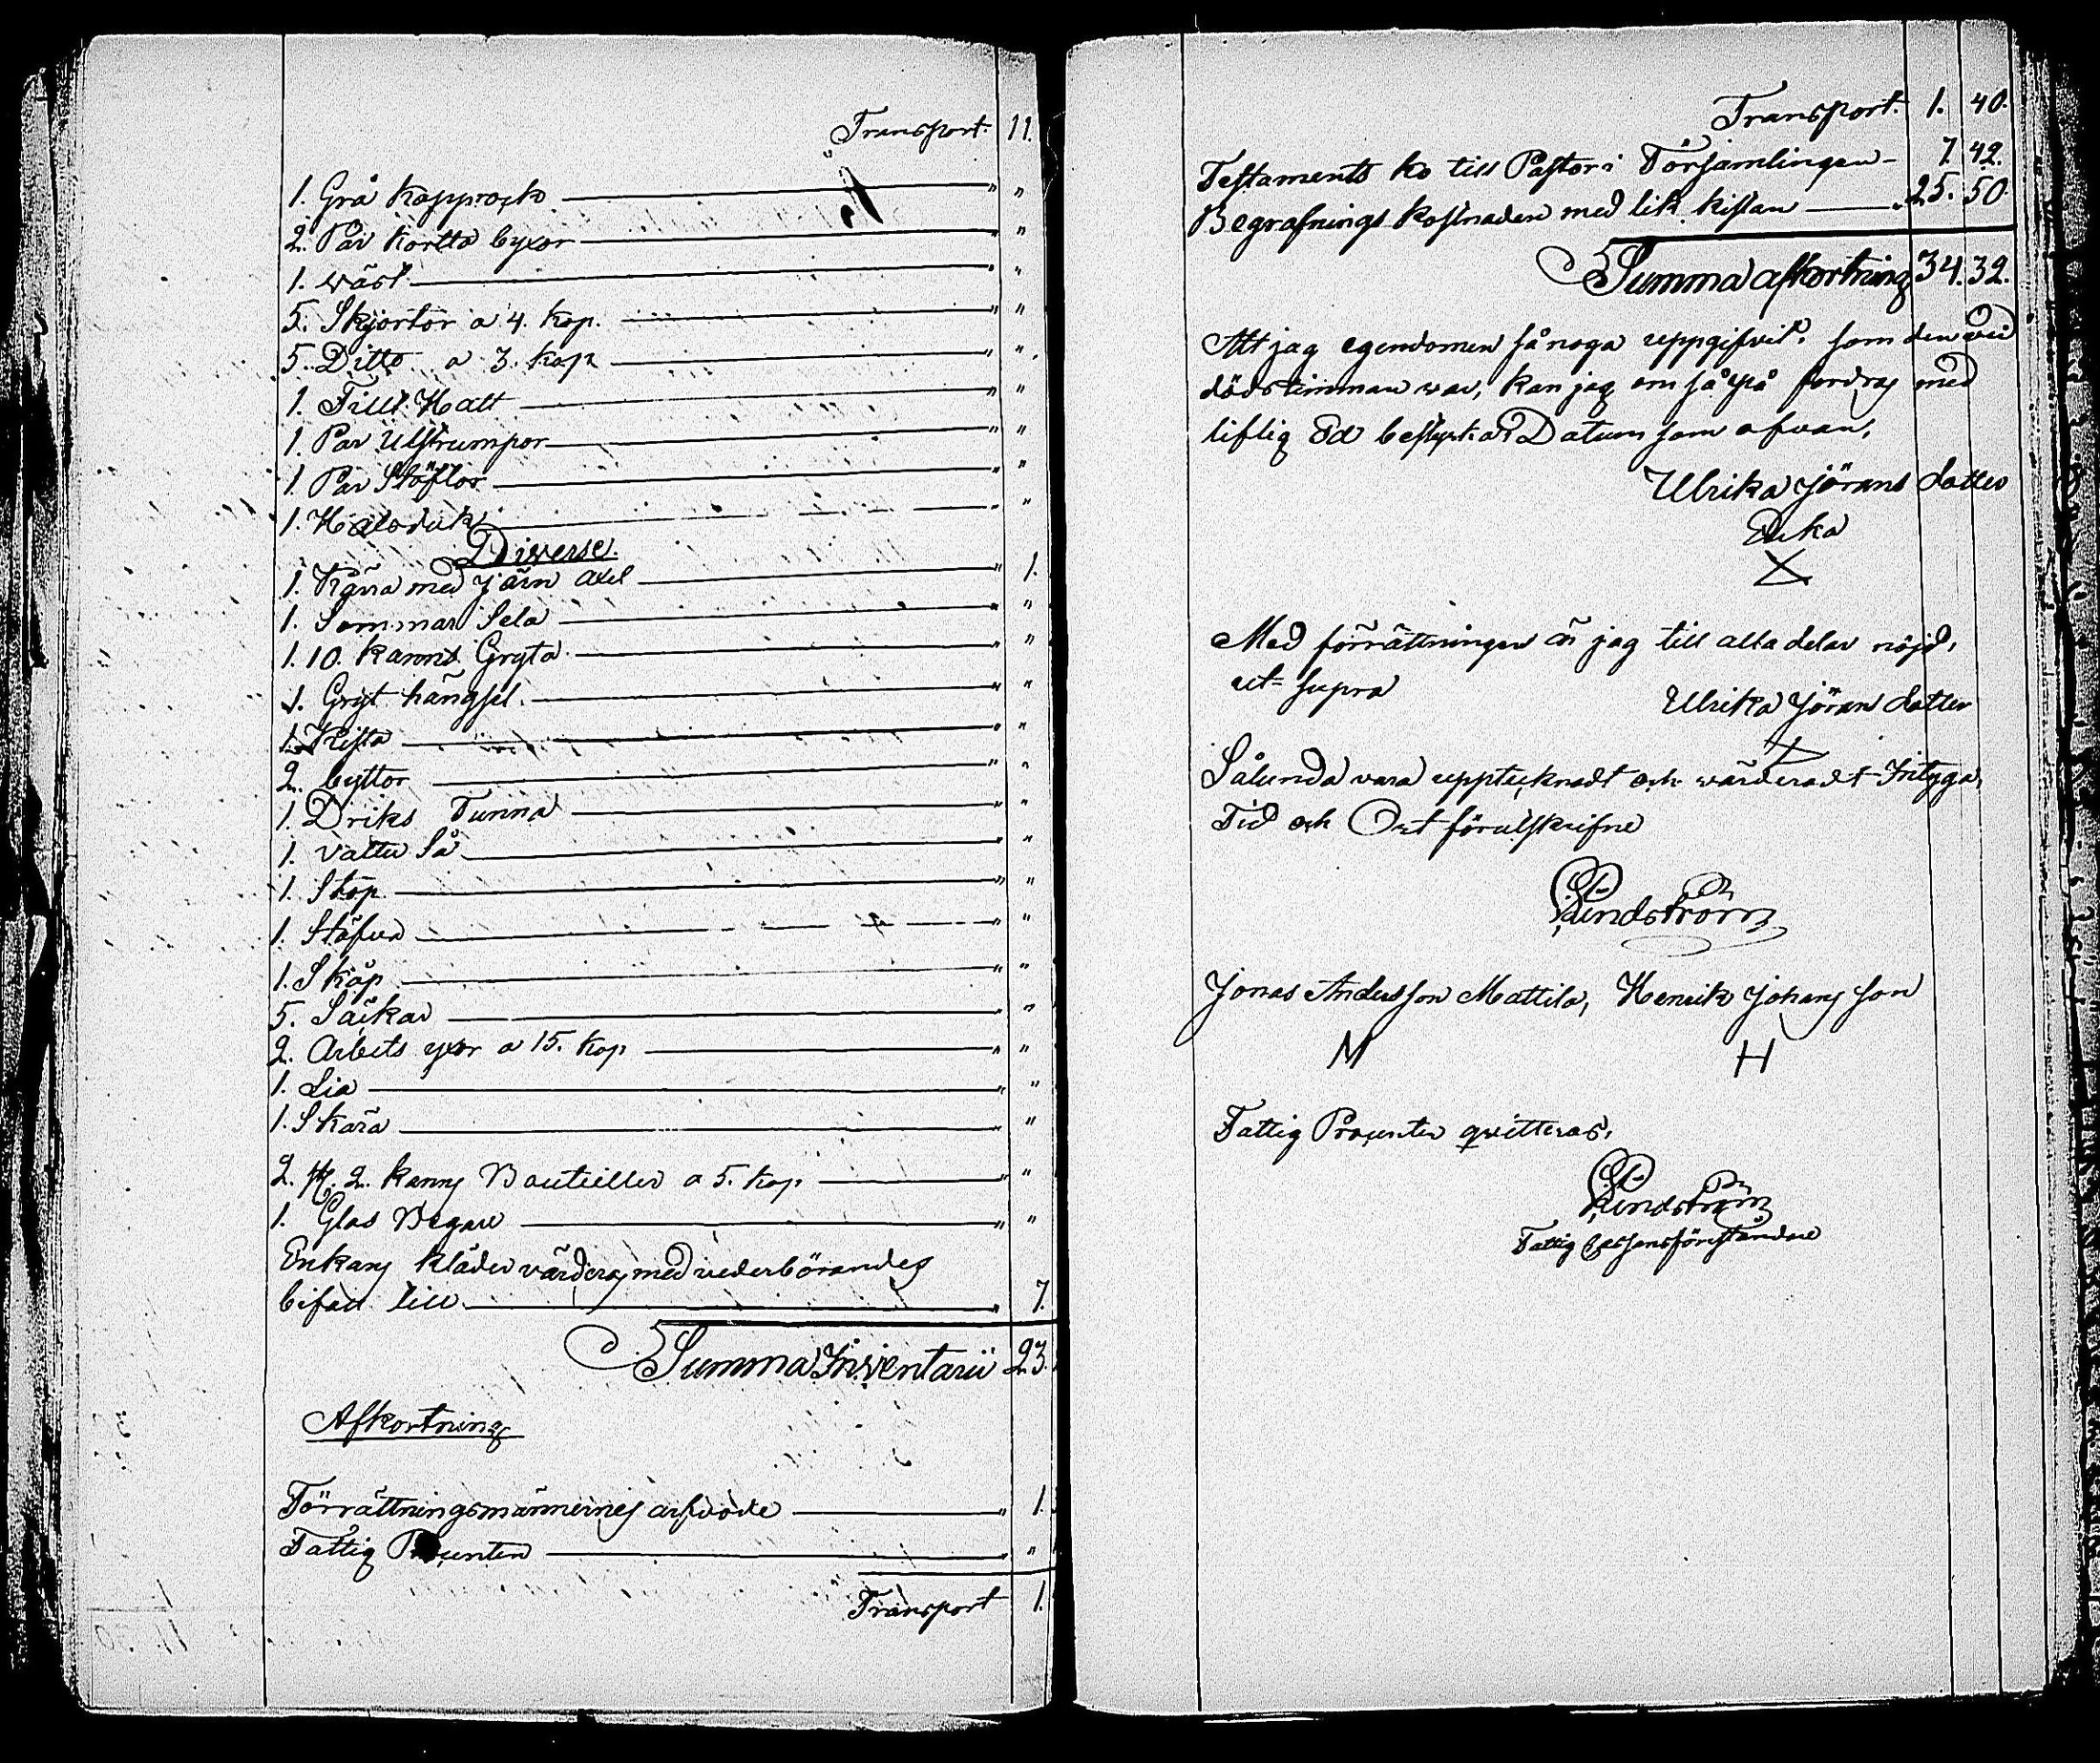 Transport. 11.
1. Grå Kapprock " "
2. Par Kortta byxor " "
1. wäst " "
5. Skjortor a 4. kop. " "
5. Ditto a 3. kop " "
1. Filt Hatt " "
1. Par Ulstrumpor " "
1. Par Stöflor " "
1. Halsduk " "
Diverse.
1. Kärra med järn axel " 1.
1. Sommar Sela " "
1. 10. kanns Gryta " "
1. Gryt hängsel. " "
1. Kista " "
2. byttor " "
1. Driks Tunna " "
1. Vattu Så " "
1. Stop " "
1. Stäfva " "
1. Skåp " "
5. Säckar " "
2. Arbets yxor a 15. kop " "
1. Lia " "
1. Skära " "
2. st. 2. kanns Bouteiller a 5. kop " "
1. Glas Begare " "
Enkans kläder värderas med vederbörandes
bifall till " 7.
Summa Inventarii 23.
Afkortning
Förrättningsmännernes arfvode " 1.
Fattig Procenten " "
Transport 1.
Transport. 1. 40.
Testaments ko till Pastor i Församlingen 7 42.
Begrafnings kostnaden med lik kistan 25. 50
Summa afkortning 34. 32.
Att jag egendomen så noga uppgifvit. som den vid
dödstimman var, kan jag om så på fordras med
liflig Ed bestyrka; Datum som ofvan,
Ulrika Jörans dotter
Enka
X
Med förrättningen är jag till alla delar nöjd,
ut supra
Ulrika Jöran dotter
X
Sålunda vara upptecknadt och värderadt Intyga,
Tid och Ort förutskrifne
Lindström
Jonas Andersson Mattila, Henrik Johansson
M H
Fattig Procenten qvitteras,
Lindström
Fattig Cassans föreståndare